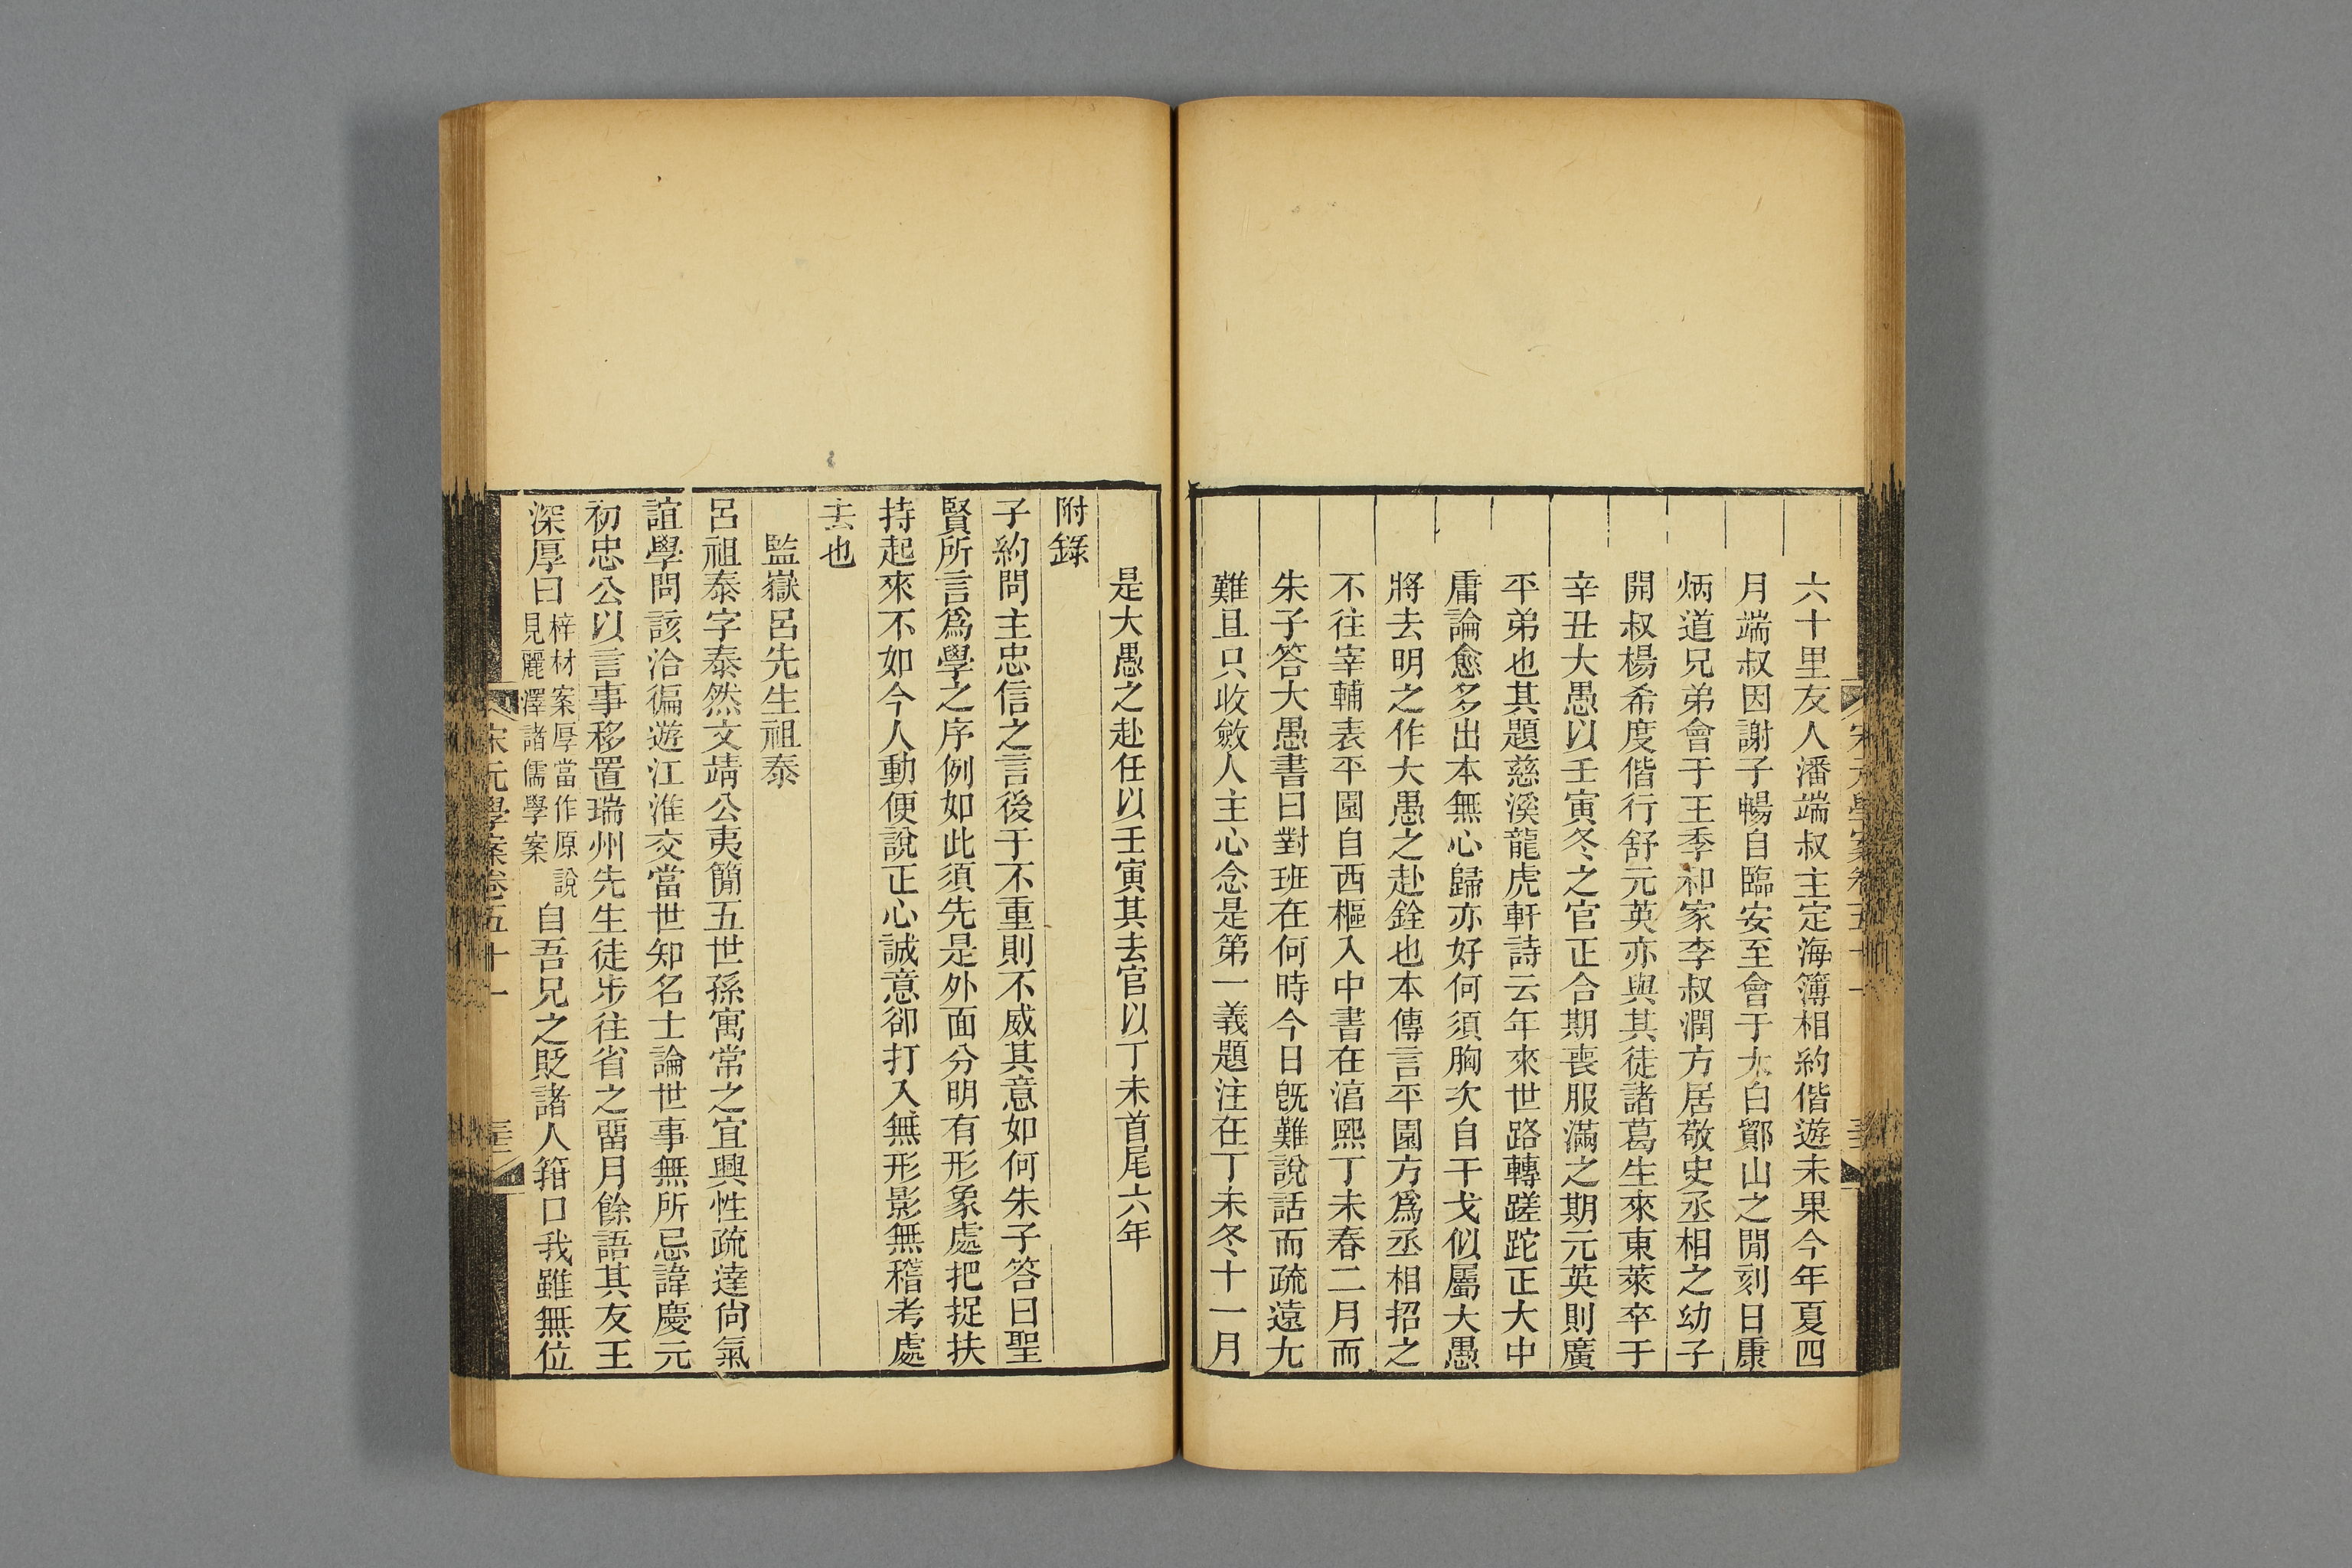 六十里友人潘端叔主定海簿相約偕遊未果今年夏四
月端叔因謝子暢自臨安至會于太白鄮山之閒刻日康
炳道兄弟會于王季和家李叔潤方居敬史丞相之幼子
開叔楊希度偕行舒元英亦與其徒諸葛生來東萊卒于
辛丑大愚以壬寅冬之官正合期喪服滿之期元英則廣
平弟也其題慈溪龍虎軒詩云年來世路轉蹉跎正大中
庸論愈多出本無心歸亦好何須胸次自干戈似屬大愚
將去明之作大愚之赴銓也本傳言平園方爲丞相招之
不往宰輔表平園自西樞入中書在湻熙丁未春二月而
朱子答大愚書曰對班在何時今日旣難說話而疏遠尢
難且只收斂人主心念是第一義題注在丁未冬十一月
是大愚之赴任以壬寅其去官以丁未首尾六年
附錄
子約問主忠信之言後于不重則不威其意如何朱子答曰聖
賢所言爲學之序例如此須先是外面分明有形象處把捉扶
持起來不如今人動便說正心誠意卻打入無形影無稽考處
去也
監嶽呂先生祖泰
呂祖泰字泰然文靖公夷簡五世孫寓常之宜興性疏達尙氣
誼學問該洽徧遊江淮交當世知名士論世事無所忌諱慶元
初忠公以言事移置瑞州先生徒步往省之畱月餘語其友王
深厚曰梓材案厚當作原說見麗澤諸儒學案自吾兄之貶諸人箝口我雖無位
宋元學案卷五十一